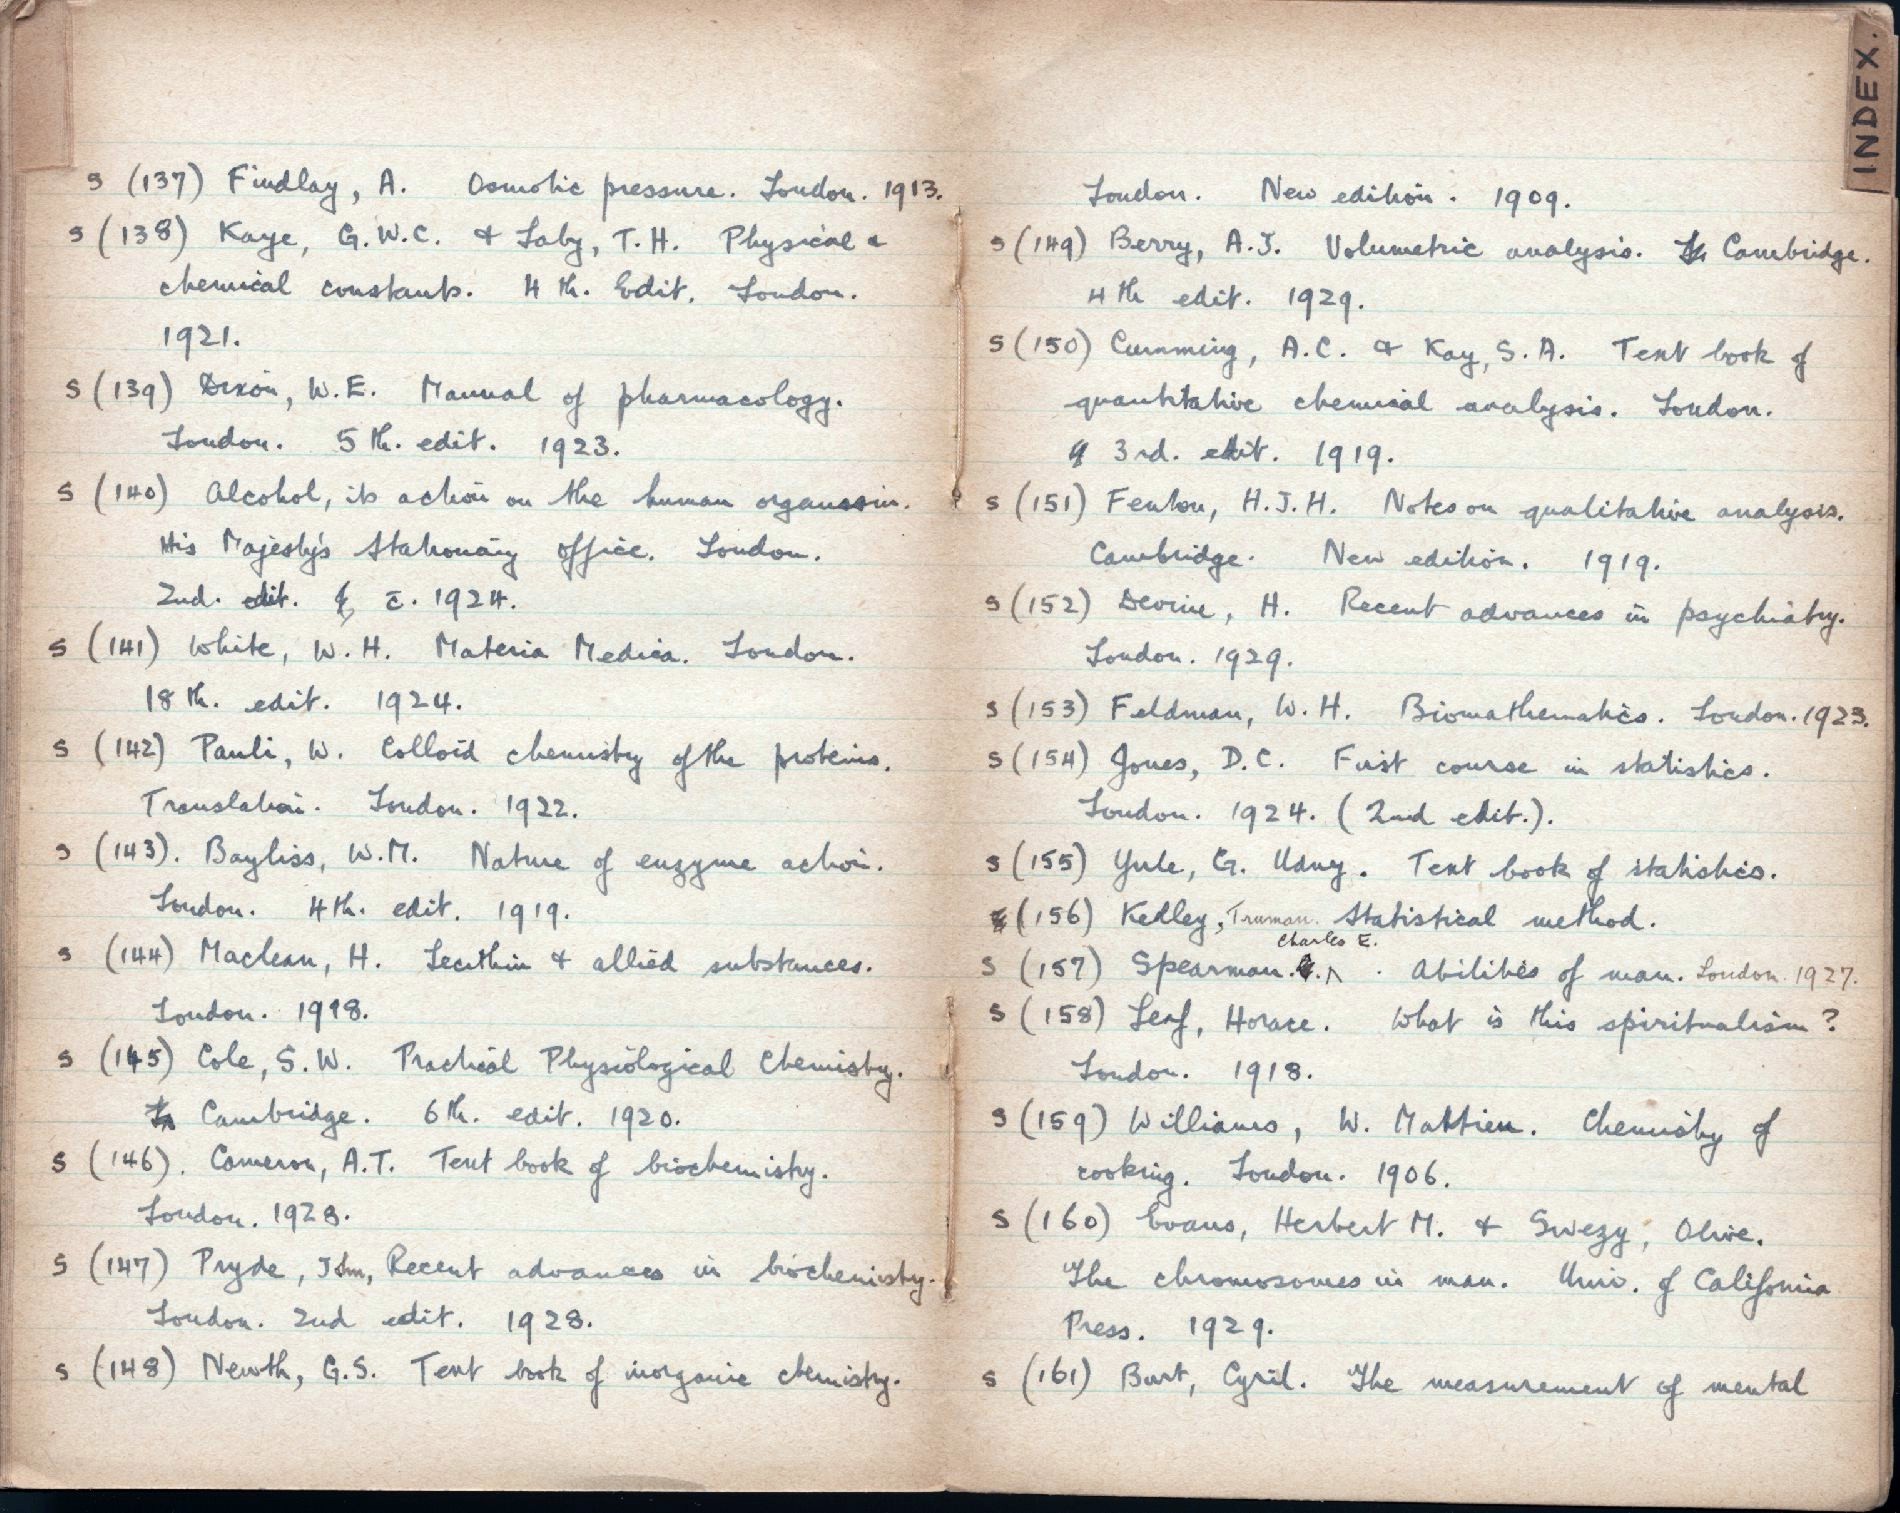 s (137) Findlay, A. Osmotic pressure. London. 1913.
s (138) Kaye, G.W.C. & Laby, T.H. Physical &
chemical constants. 4th. Edit. London.
1921.
s (139) Dixon, W.E. Manual of pharmacology.
London. 5th. edit. 1923.
s (140) Alcohol, its action on the human organism.
His Majesty's Stationary Office. London.
2nd. edit. c. 1924.
s (141) White, W.H. Materia Medica. London.
18th. edit. 1924.
s (142) Pauli, W. Colloid chemistry of the proteins.
Translation. London. 1922.
s (143). Bayliss, W.M. Nature of enzyme action.
London. 4th. edit. 1919.
s (144) Maclean, H. Lecithin & allied substances.
London. 1918.
s (145) Cole, S.W. Practical Physiological Chemistry.
Cambridge. 6th. edit. 1920.
s (146). Cameron, A.T. Text book of biochemistry.
London. 1928.
s (147) Pryde, John, Recent advances in biochemistry.
London. 2nd edit. 1928.
s (148) Newth, G.S. Text book of inorganic chemistry.
INDEX.
London. New edition. 1909.
s (149) Berry, A.J. Volumetric analysis. Cambridge.
4th edit. 1929.
s (150) Cumming, A.C. & Kay, S.A. Text book of
quantitative chemical analysis. London.
3rd. edit. 1919.
s (151) Fenton, H.J.H. Notes on qualitative analysis.
Cambridge. New edition. 1919.
s (152) Devine, H. Recent advances in psychiatry.
London. 1929.
s (153) Feldman, W.H. Biomathematics. London. 1923.
s (154) Jones, D.C. First course in statistics.
London. 1924. (2nd edit.).
s (155) Yule, G. Udny. Text book of statistics.
(156) Kelley, Truman. Statistical method.
Charles E.
s (157) Spearman. Abilities of man. London. 1927.
s (158) Leaf, Horace. What is this spiritualism?
London. 1918.
s (159) Williams, W. Mattieu. Chemistry of
cooking. London. 1906.
s (160) Evans, Herbert M. & Swezy, Olive.
The chromosomes in man. Univ. of California
Press. 1929.
s (161) Burt, Cyril. The measurement of mental